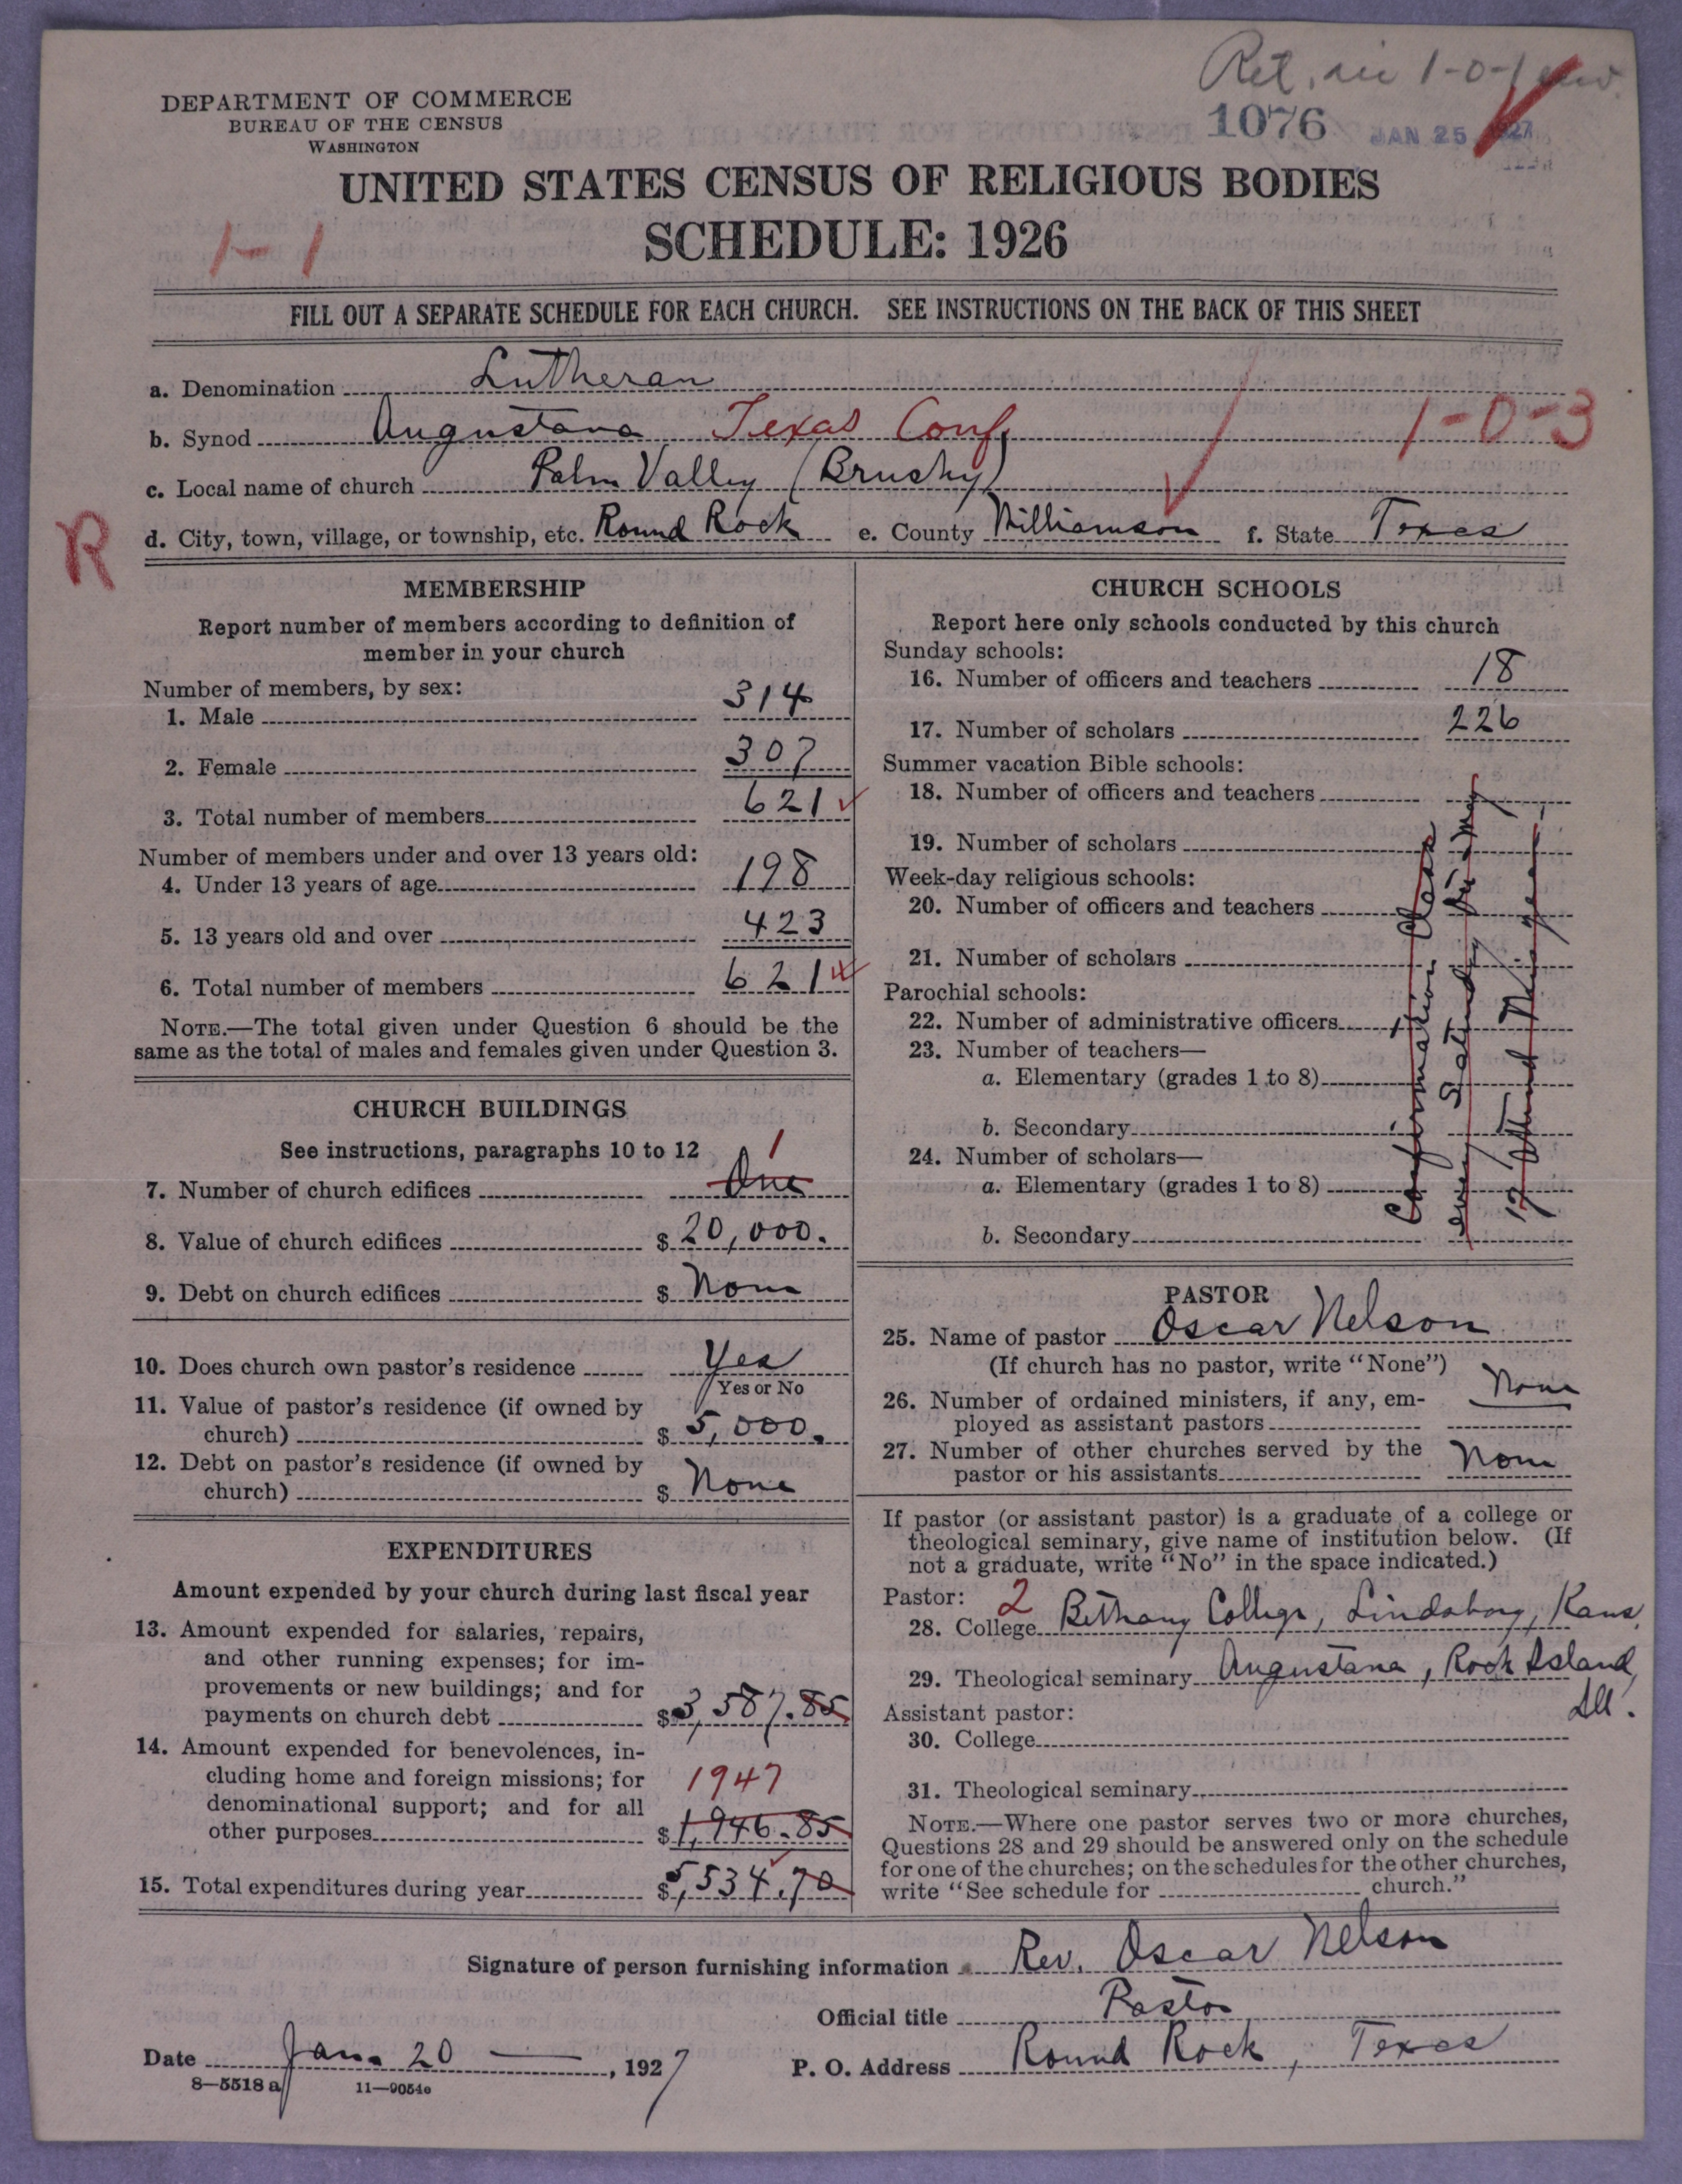 Ret. in 1-0-1
1076 JAN 25 1927
DEPARTMENT OF COMMERCE
BUREAU OF THE CENSUS
WASHINGTON
UNITED STATES CENSUS OF RELIGIOUS BODIES
SCHEDULE: 1926
1-1
FILL OUT A SEPARATE SCHEDULE FOR EACH CHURCH. SEE INSTRUCTIONS ON THE BACK OF THIS SHEET
a. Denomination Lutheran
b. Synod Augustana Texas Conf. 1-0-3
c. Local name of church Palm Valley (Brushy)
R
d. City, town, village, or township, etc. Round Rock e. County Williamson f. State Texas
MEMBERSHIP
Report number of members according to definition of
member in your church
Number of members, by sex:
1. Male 314
2. Female 307
3. Total number of members 621
Number of members under and over 13 years old:
4. Under 13 years of age 198
5. 13 years old and over 423
6. Total number of members 621
NOTE.—The total given under Question 6 should be the
same as the total of males and females given under Question 3.
CHURCH BUILDINGS
See instructions, paragraphs 10 to 12
1
7. Number of church edifices One
8. Value of church edifices $ 20,000.
9. Debt on church edifices $ None
10. Does church own pastor's residence Yes
Yes or No
11. Value of pastor's residence (if owned by
church) $ 5,000.
12. Debt on pastor's residence (if owned by
church) $ None
EXPENDITURES
Amount expended by your church during last fiscal year
13. Amount expended for salaries, repairs,
and other running expenses; for im-
provements or new buildings; and for
payments on church debt $3,587.85
14. Amount expended for benevolences, in-
cluding home and foreign missions; for 1947
denominational support; and for all
other purposes $1,946.85
15. Total expenditures during year $5,534.70
CHURCH SCHOOLS
Report here only schools conducted by this church
Sunday schools:
16. Number of officers and teachers 18
17. Number of scholars 226
Summer vacation Bible schools:
18. Number of officers and teachers
19. Number of scholars
Week-day religious schools:
20. Number of officers and teachers
21. Number of scholars
Parochial schools:
22. Number of administrative officers
23. Number of teachers—
a. Elementary (grades 1 to 8)
b. Secondary
24. Number of scholars—
a. Elementary (grades 1 to 8)
b. Secondary
Confirmation Class
every Saturday
17 attend this year
PASTOR
25. Name of pastor Oscar Nelson
(If church has no pastor, write "None")
26. Number of ordained ministers, if any, em-
ployed as assistant pastors None
27. Number of other churches served by the
pastor or his assistants None
If pastor (or assistant pastor) is a graduate of a college or
theological seminary, give name of institution below. (If
not a graduate, write "No" in the space indicated.)
Pastor: 2
28. College Bethany College, Lindsborg, Kans.
29. Theological seminary Augustana, Rock Island,
Ill.
Assistant pastor:
30. College
31. Theological seminary
NOTE.—Where one pastor serves two or more churches,
Questions 28 and 29 should be answered only on the schedule
for one of the churches; on the schedules for the other churches,
write "See schedule for church."
Signature of person furnishing information Rev. Oscar Nelson
Official title Pastor
Date Jan. 20, 1927 P. O. Address Round Rock, Texas
8—5518 a 11—9054c